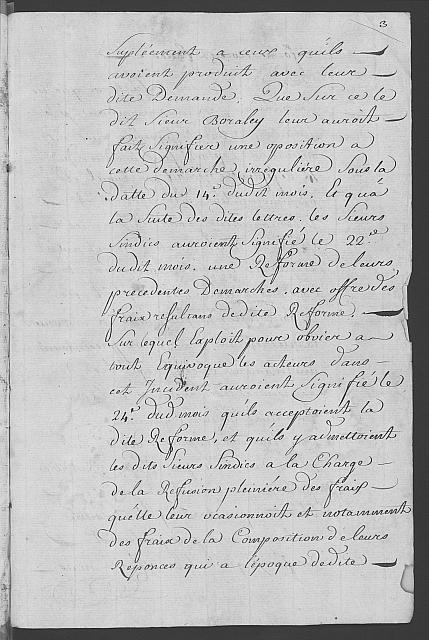 3
Supléement a ceux quils
avoient produit avec leur
dite Demande. Que Sur ce le
dit Sieur Boraley leur auroit
fait Signifier une oposition a
cette demarche irréguliére Sous la
datte du 14.e dudit mois. Et qu'á
la Suite des dites lettres. les Sieurs
Sindics auroient Signifié le 22.e
dudit mois. une Reforme de leurs
precedentes Demarches. avec offre des
fraix resultans de dite Reforme.
Sur quel Exploit pour obvier a
tout Equivoque les acteurs dans
cet Incident auroient Signifié le
24.e dud mois quils acceptoient la
dite Reforme, et quils y admettoient
les dits Sieurs Sindics a la Charge
de la Refusion pleiniére des fraix
qu'élle leur ocasionnoit et notamment
des fraix de la Composition de leurs
Réponces qui a l'époque de dite